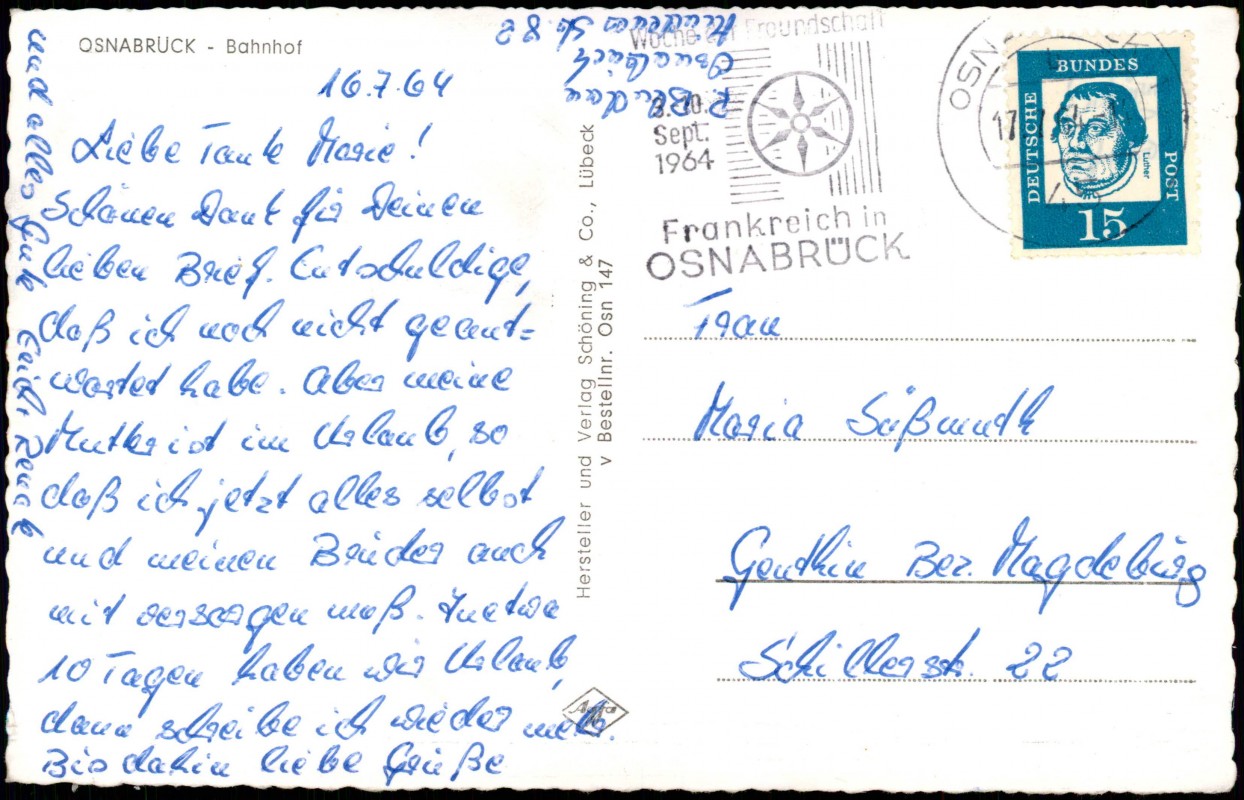 OSNABRÜCK - Bahnhof
16.7.64
Liebe Tante Marie!
Schönen Dank für Deinen
lieben Brief. Entschuldige,
daß ich noch nicht geant=
wortet habe. Aber meine
Mutter ist im Urlaub, so
daß ich jetzt alles selbst
und meinen Bruder auch
mit versorgen muß. In etwa
10 Tagen haben wir Urlaub,
dann schreibe ich wieder mehr.
Bis dahin liebe Grüße
und alles Gute
Osnabrück
Str. 82
Hersteller und Verlag Schöning & Co., Lübeck
v Bestellnr. Osn 147
Agfa
Woche der Freundschaft
Sept.
1964
Frankreich in
OSNABRÜCK
DEUTSCHE
BUNDES
POST
Luther
15
Frau
Maria Süßmuth
Genthin Bez. Magdeburg
Schillerstr. 22